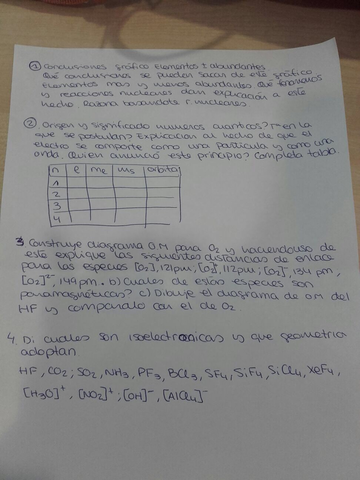 ① Conclusiones gráfico elementos + abundantes
Qué conclusiones se pueden sacar de este gráfico
elementos mas y menos abundantes. Que fenomenos
y reacciones nucleares dan explicación a este
hecho. Razona basandote r. nucleares
② Origen y significado numeros cuanticos? Tª en la
que se postulan? Explicacion al hecho de que el
electro se comporte como una particula y como una
onda. Quien anunció este principio? Completa tabla.
n l me ms orbital
1
2
3
4
3 Construye diagrama OM para O₂ y haciendo uso de
este explique las siguientes distancias de enlace
para las especies [O₂], 121pm; [O₂]⁺, 112pm; [O₂]⁻, 134 pm,
[O₂]²⁻, 149pm. b) Cuales de estas especies son
paramagnéticas? c) Dibuje el diagrama de OM del
HF y comparalo con el de O₂
4. Di cuales son isoelectronicas y que geometria
adoptan
HF, CO₂; SO₂, NH₃, PF₃, BCl₃, SF₄, SiF₄, SiCl₄, XeF₄,
[H₃O]⁺, [NO₂]⁺; [OH]⁻, [AlCl₄]⁻